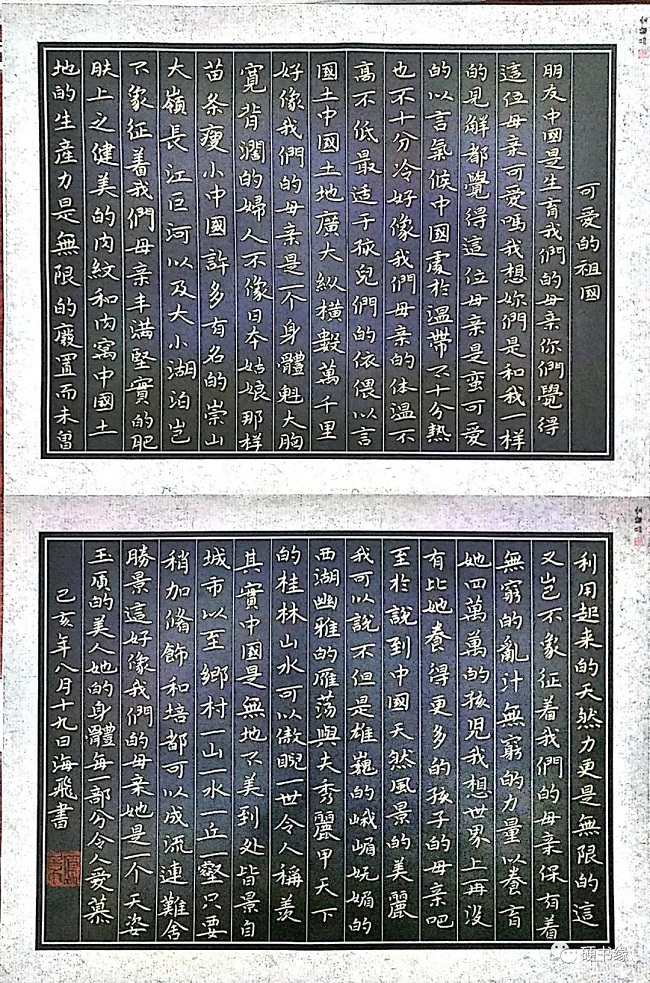 可爱的祖國
朋友中國是生育我們的母亲你們覺得
這位母亲可愛嗎我想妳們是和我一样
的見解都覺得這位母亲是蛮可愛
的以言氣候中國處於溫帶不十分熱
也不十分冷好像我們母亲的体温不
高不低最适于孩兒們的依偎以言
國土中國土地廣大縱橫數萬千里
好像我們的母亲是一个身體魁大胸
寬背濶的婦人不像日本姑娘那样
苗条瘦小中國許多有名的崇山
大嶺長江巨河以及大小湖泊岂
不象征着我們母亲丰满堅實的肥
肤上之健美的肉紋和肉窩中國土
地的生産力是無限的廢置而未曽
利用起来的天然力更是無限的這
又岂不象征着我們的母亲保有着
無窮的亂汁無窮的力量以養育
她四萬萬的孩児我想世界上再没
有比她養得更多的孩子的母亲吧
至於説到中國天然風景的美麗
我可以説不但是雄巍的峨嵋妩媚的
西湖幽雅的雁荡與夫秀麗甲天下
的桂林山水可以傲睨一世令人稱羨
其實中國是無地不美到处皆景自
城市以至鄉村一山一水一丘一壑只要
稍加脩飾和培都可以成流連難舍
勝景這好像我們的母亲她是一个天姿
玉质的美人她的身體每一部分令人爱慕
己亥年八月十九日海飛書
硕书缘